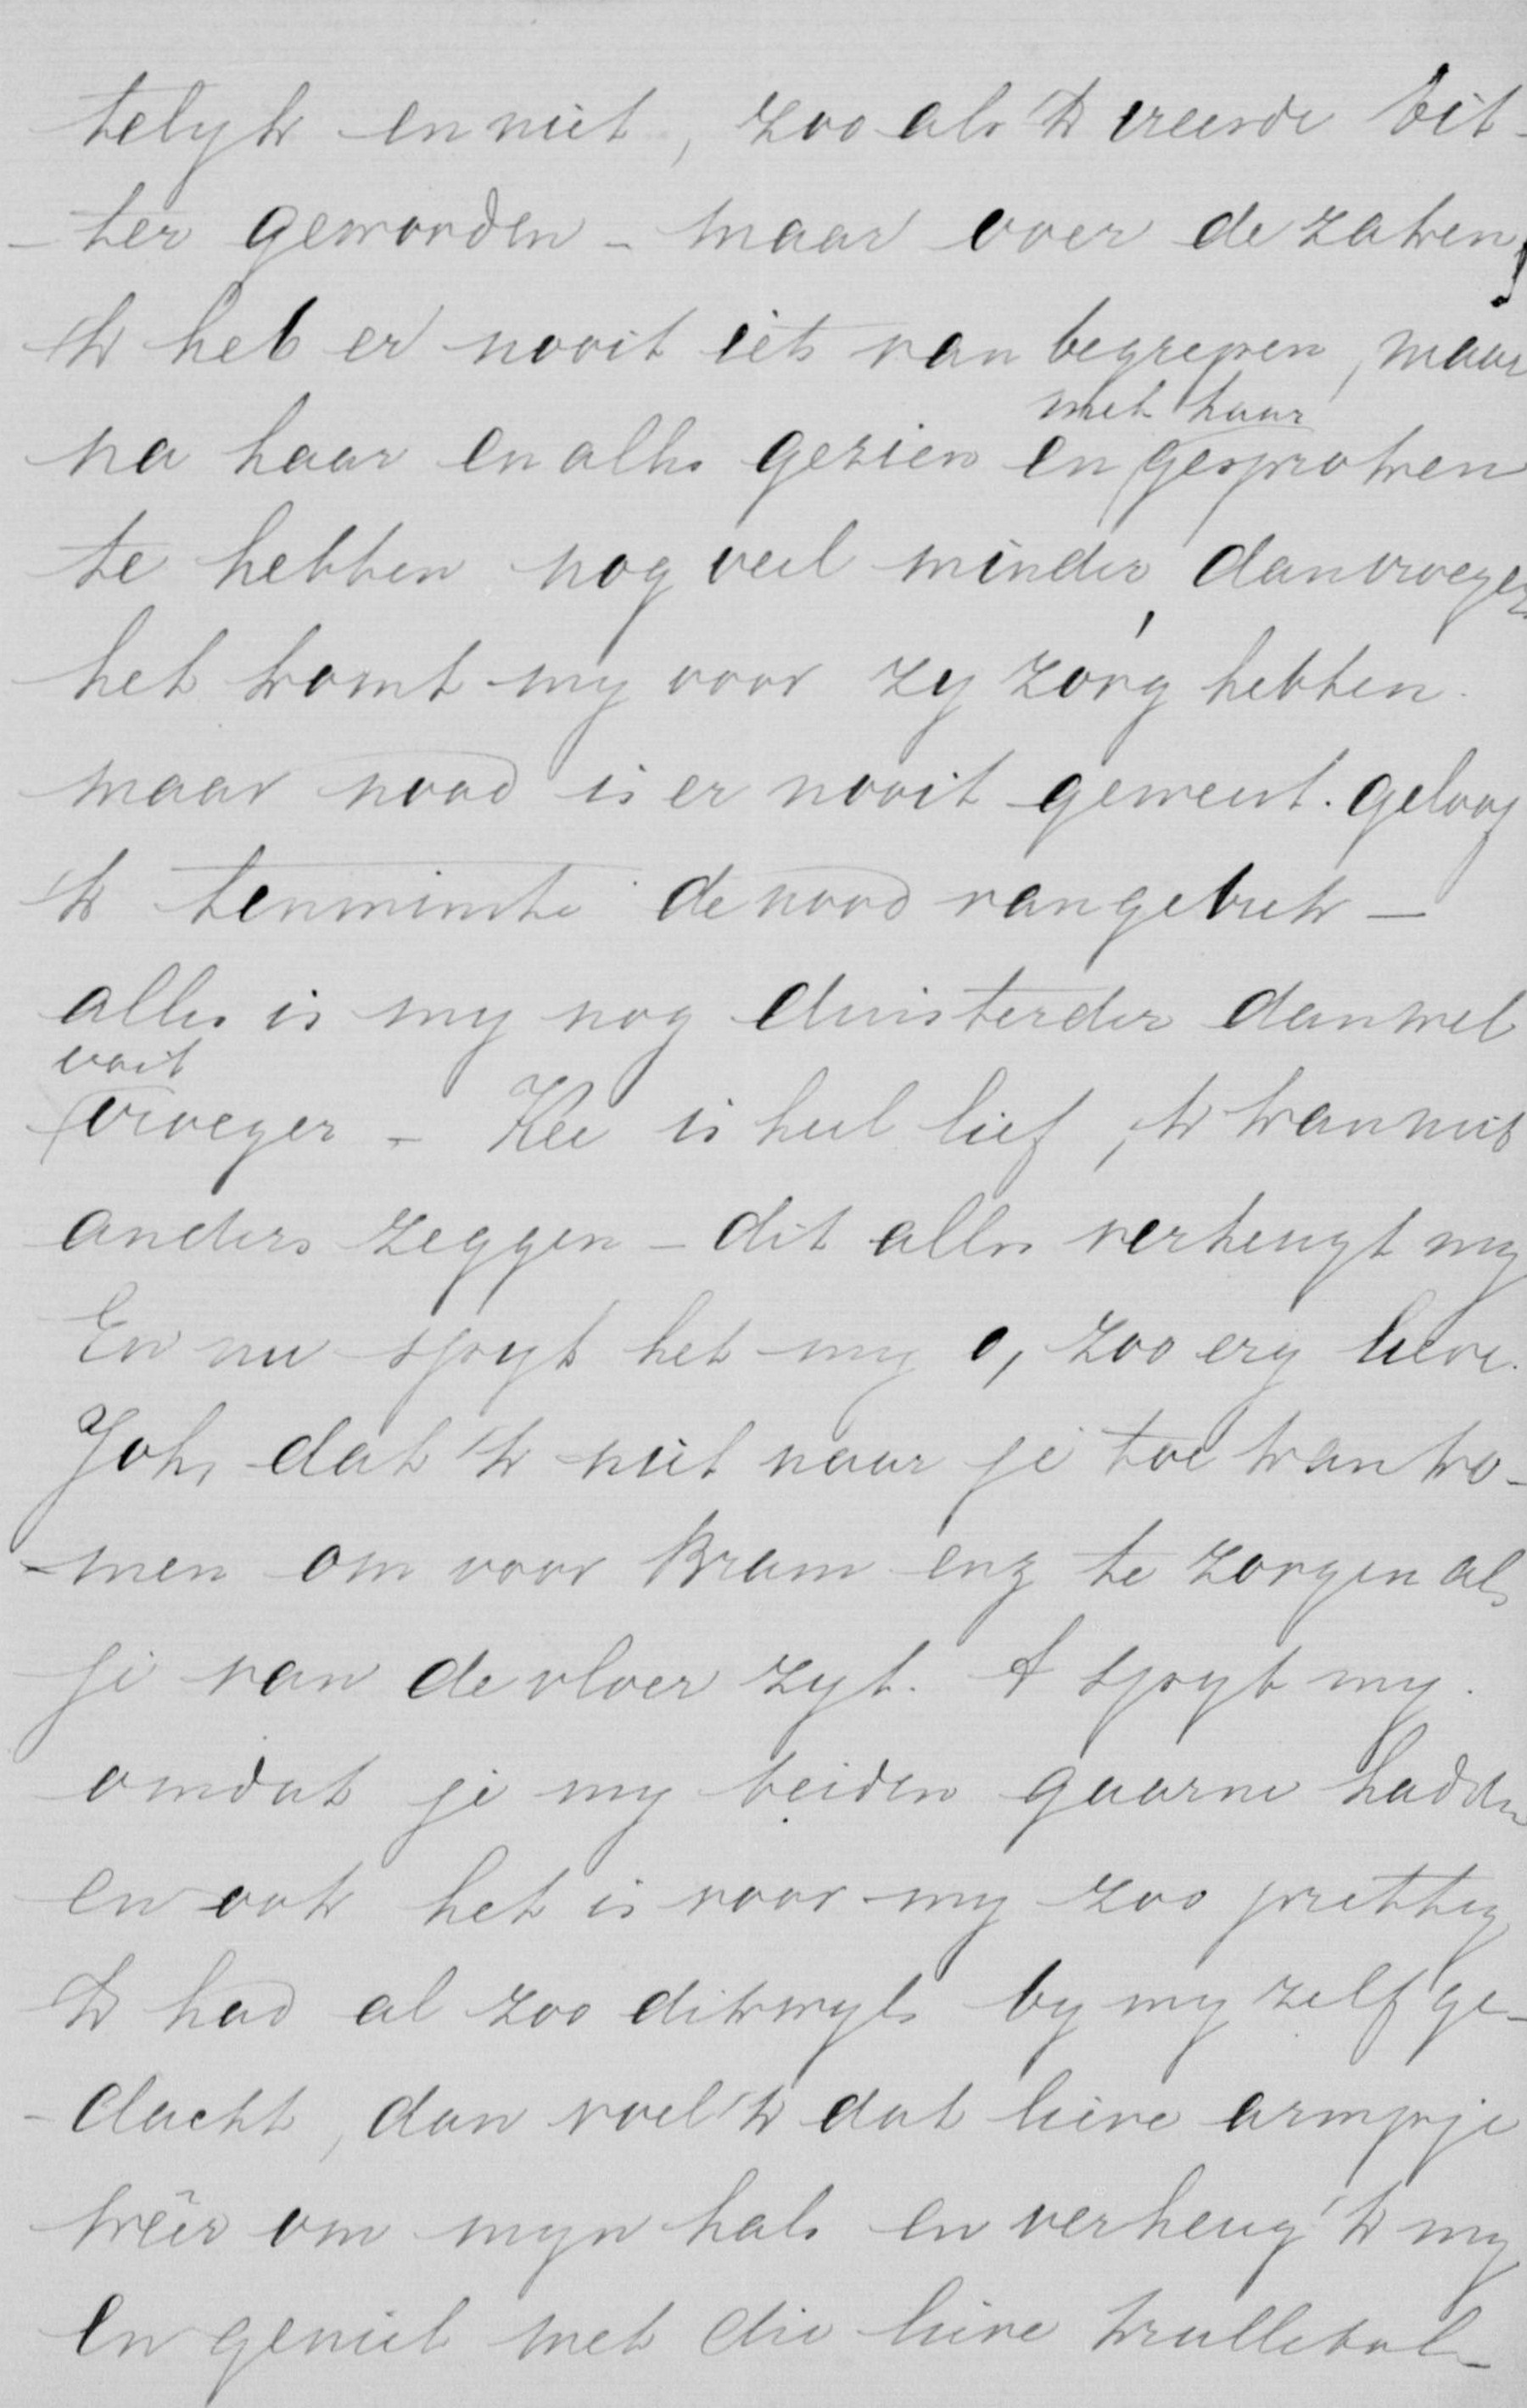 telyk en niet, zoo als 'k vreesde bit-
-ter geworden - maar over de zaken,
'k heb er nooit iets van begrepen, maar
met haar
na haar en alles gezien en gesproken
te hebben nog veel minder, dan vroeger
het komt my voor zy zorg hebben.
maar nood is er nooit geweest. geloof
'k tenminste de nood van gebrek -
alles is my nog duisterder dan wel
ooit
vroeger - Kee is heel lief, 'k kan niet
anders zeggen - dit alles verheugt my
En nu spyt het my o, zoo erg lieve.
Joh, dat 'k niet naar je toe kan ko-
-men om voor Bram enz te zorgen als
je van de vloer zyt. 't spyt my.
omdat je my beiden gaarne hadden
en ook het is voor my zoo prettig
'k had al zoo dikwyls by my zelf ge-
-dacht, dan voel 'k dat lieve armpje
weêr om myn hals en verheug 'k my
en geniet met die lieve krullebol-